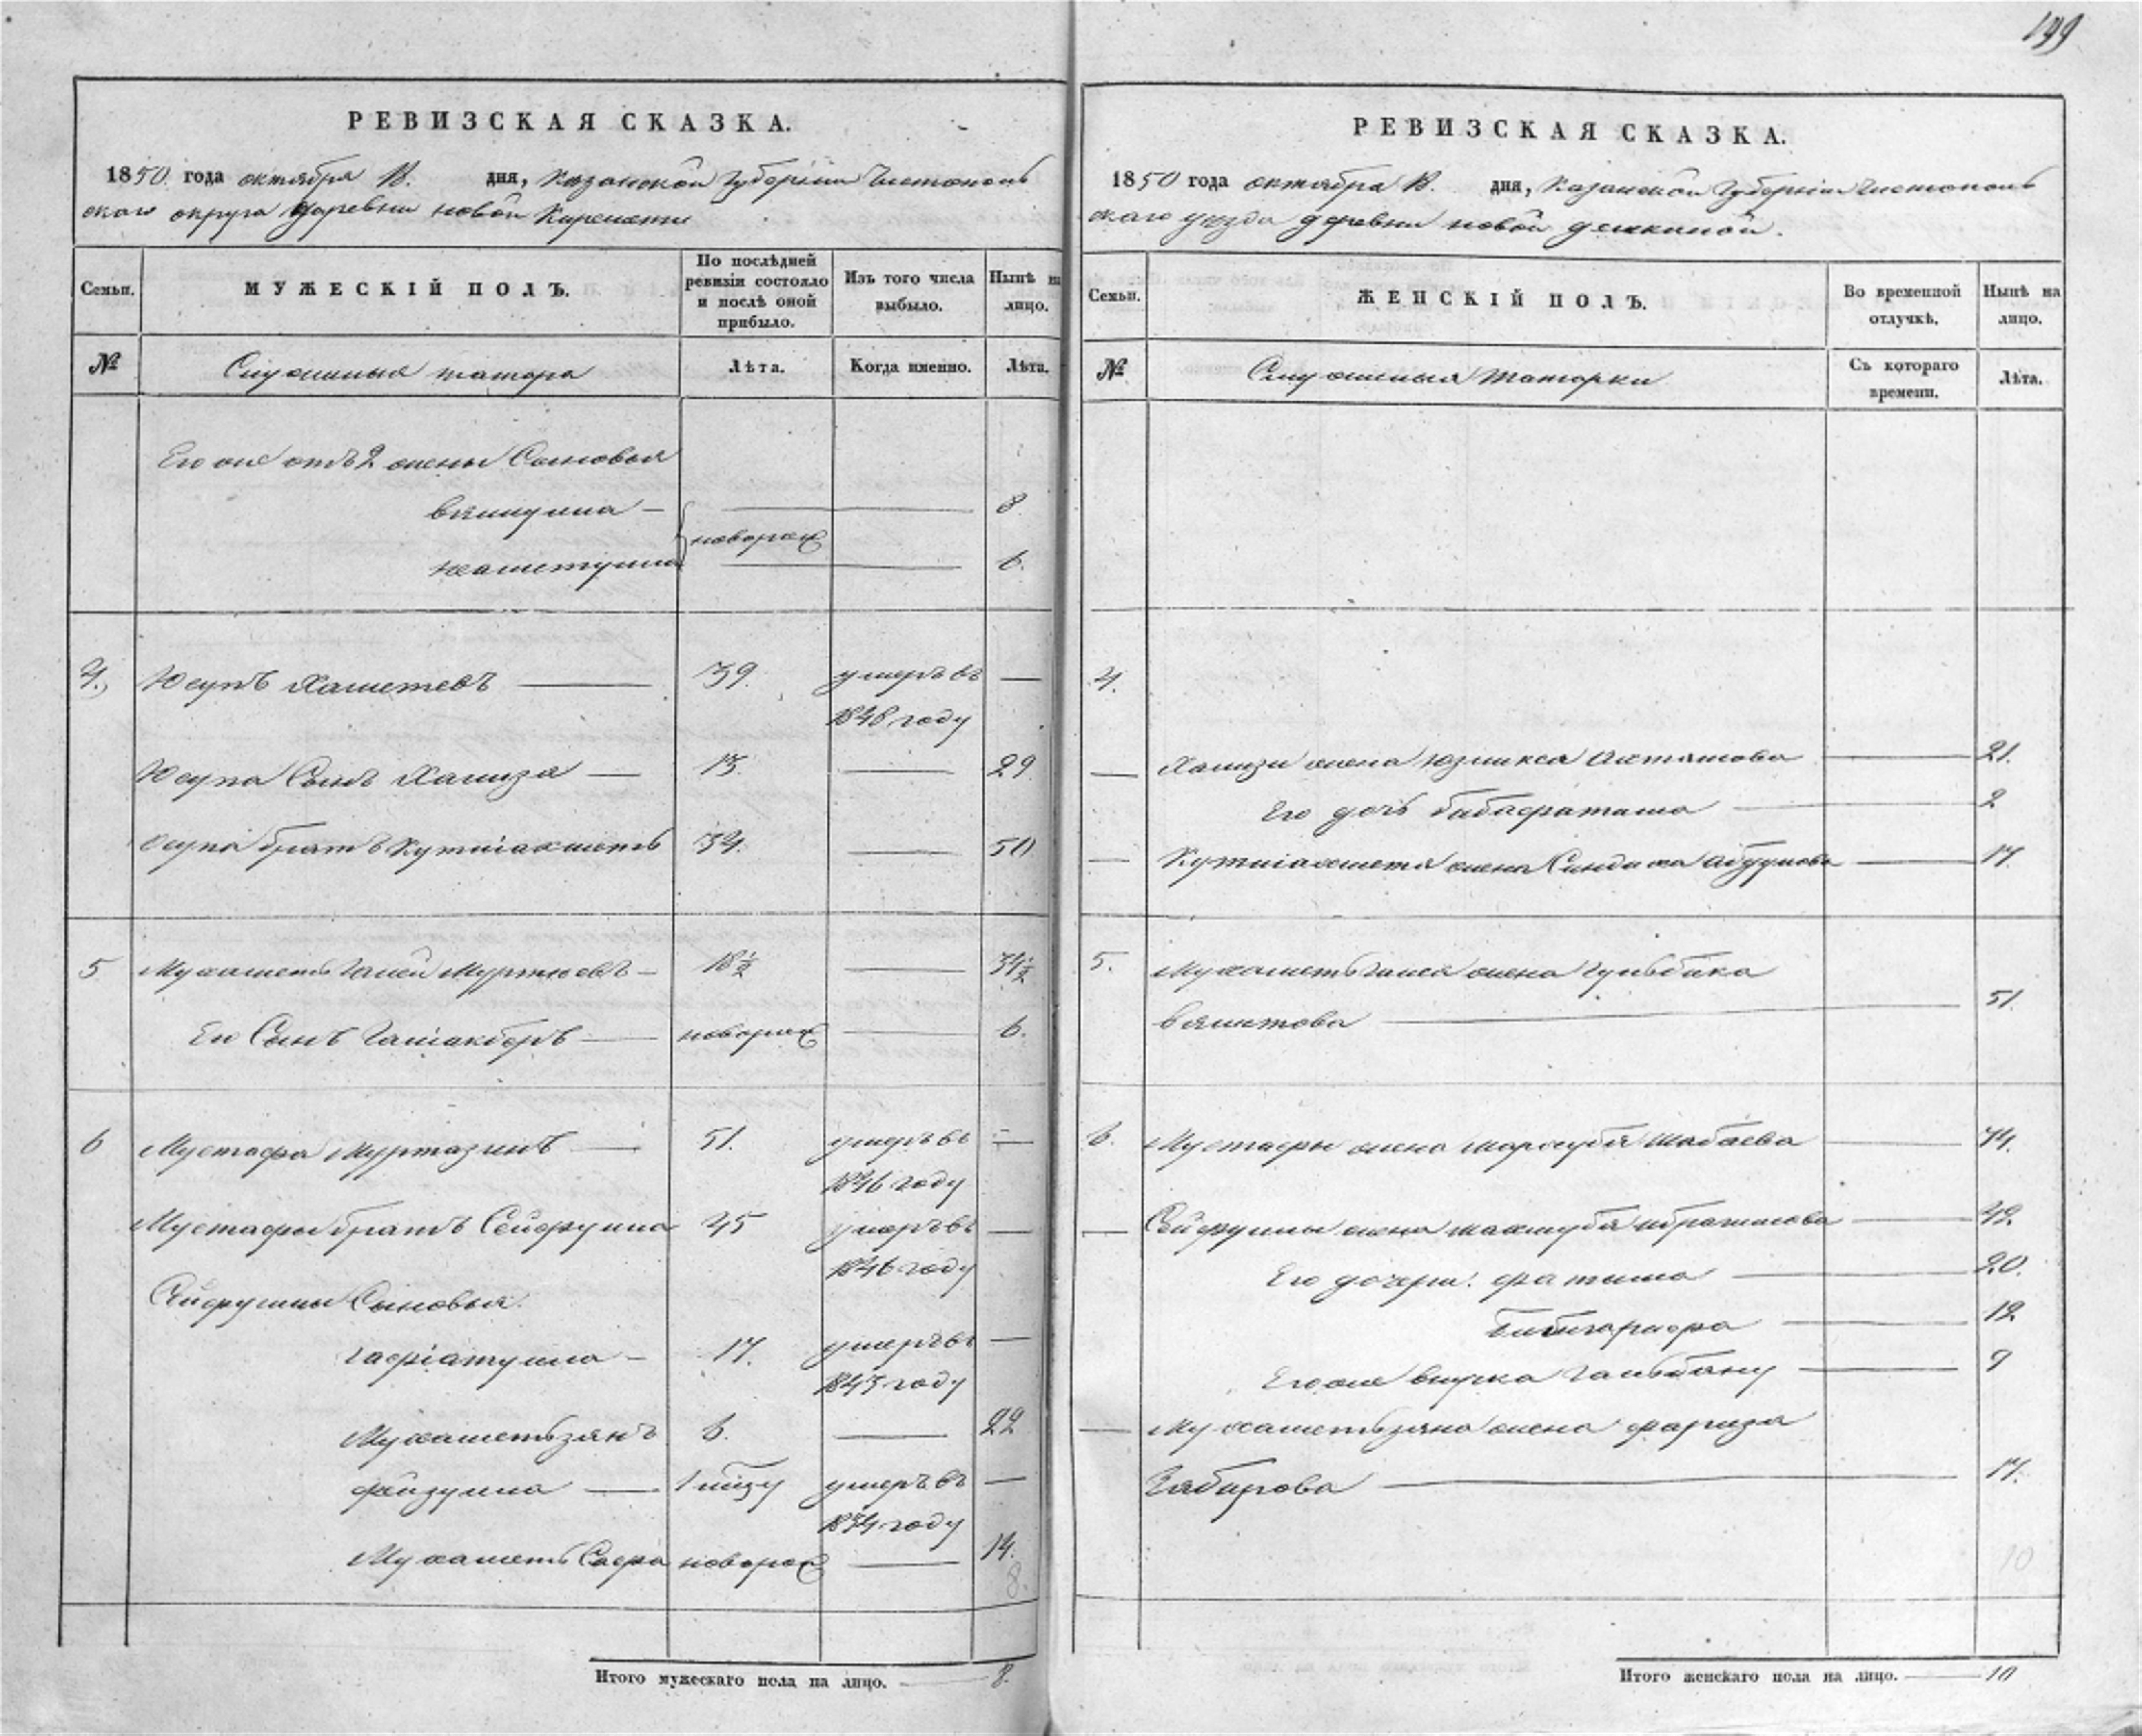 199
РЕВИЗСКАЯ СКАЗКА.
1850 года октября дня, Казанской Губернiи Чистополь
скаго округа деревни новой Киремети
Семьи. МУЖЕСКIЙ ПОЛЪ. По послѣдней ревизiи состояло и послѣ оной прибыло. Изъ того числа выбыло. Нынѣ на лицо.
№ Служилыя татара Лѣта. Когда именно. Лѣта.
Его же отъ 2 жены Сыновья
вялиулла — новорож — 8
Хаметулла — — 6.
4. Юсупъ Хаметевъ — 39. умеръ въ —
1848 году
Юсупа Сынъ Хамиза — 13. — 29
Юсупа братъ Кутлiахметъ 34. — 50
5 Мухаметьгалей Муртюевъ — 18½ — 34½
Его Сынъ Галiакберъ — новорож — 6.
6 Мустафа Муртазинъ — 51. умеръ въ —
1846 году
Мустафы братъ Сейфулла 45 умеръ въ —
1846 году
Сейфуллы Сыновья
гафiатулла — 17. умеръ въ —
1843 году
Мухаметьзянъ 6. — 22
фейзулла — 1 умеръ въ —
1834 году
Мухаметь Сафа новорож — 14.
8.
Итого мужескаго пола на лицо. — 8.
РЕВИЗСКАЯ СКАЗКА.
1850 года октября дня, Казанской Губернiи Чистополь
скаго уезда деревни новой
Семьи. ЖЕНСКIЙ ПОЛЪ. Во временной отлучкѣ. Нынѣ на лицо.
№ Служилыя татарки Съ котораго времени. Лѣта.
4.
— Хамизы жена Актямова — 21.
Его дочь — 2
— Кутлiахметя жена — 17.
5. Мухаметьгалея жена Гульбика
вяметова — 51.
6. Мустафы жена Шабаева — 74.
— Сейфуллы жена махмубя ибрагимова — 42
Его дочери: фатыма — 20.
— 12
Его же внучка Гальбану — 9
— Мухаметьзяна жена фариза
Зябирова — 17.
10
Итого женскаго пола на лицо. — 10